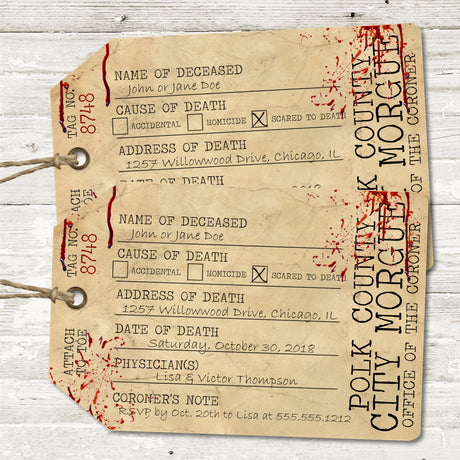 TAG NO.
8748
NAME OF DECEASED
John or Jane Doe
CAUSE OF DEATH
ACCIDENTAL HOMICIDE X SCARED TO DEATH
ADDRESS OF DEATH
1257 Willowwood Drive, Chicago, IL
DATE OF DEATH
POLK COUNTY
CITY MORGUE
OFFICE OF THE CORONER
TAG NO.
8748
ATTACH
TO TOE
NAME OF DECEASED
John or Jane Doe
CAUSE OF DEATH
ACCIDENTAL HOMICIDE X SCARED TO DEATH
ADDRESS OF DEATH
1257 Willowwood Drive, Chicago, IL
DATE OF DEATH
Saturday, October 30, 2018
PHYSICIAN(S)
Lisa & Victor Thompson
CORONER'S NOTE
RSVP by Oct. 20th to Lisa at 555.555.1212
POLK COUNTY
CITY MORGUE
OFFICE OF THE CORONER